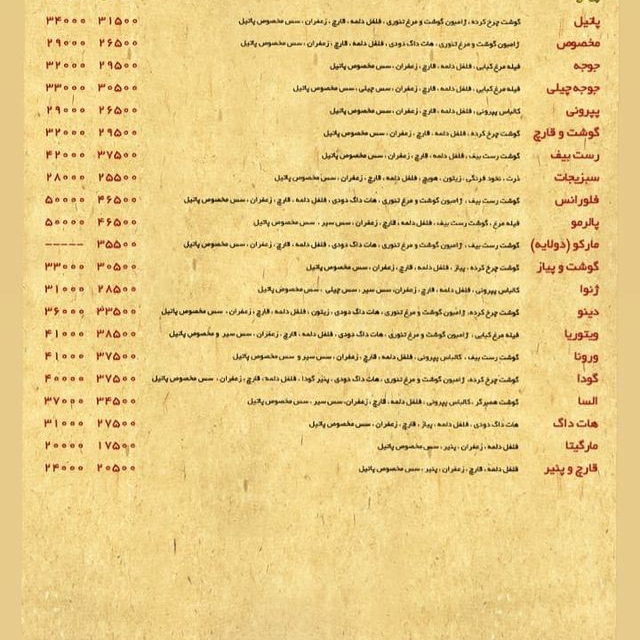 پاتیل گوشت چرخ کرده، ژامبون گوشت و مرغ تنوری ، فلفل دلمه، قارچ ، زعفران ، سس مخصوص پاتیل ۳۱۵۰۰ ۳۴۰۰۰
مخصوص ژامبون گوشت و مرغ تنوری ، هات داگ دودی ، فلفل دلمه ، قارچ ، زعفران ، سس مخصوص پاتیل ۲۶۵۰۰ ۲۹۰۰۰
جوجه فیله مرغ کبابی ، فلفل دلمه ، قارچ ، زعفران ، سس مخصوص پاتیل ۲۹۵۰۰ ۳۲۰۰۰
جوجه چیلی فیله مرغ کبابی ، فلفل دلمه ، قارچ ، زعفران ، سس چیلی ، سس مخصوص پاتیل ۳۰۵۰۰ ۳۳۰۰۰
پپرونی کالباس پپرونی ، فلفل دلمه ، قارچ ، زعفران ، سس مخصوص پاتیل ۲۶۵۰۰ ۲۹۰۰۰
گوشت و قارچ گوشت چرخ کرده، فلفل دلمه ، قارچ ، زعفران ، سس مخصوص پاتیل ۲۹۵۰۰ ۳۲۰۰۰
رست بیف گوشت رست بیف ، فلفل دلمه ، قارچ ، زعفران ، سس مخصوص پاتیل ۳۷۵۰۰ ۴۲۰۰۰
سبزیجات ذرت ، نخود فرنگی ، زیتون ، هویج ، فلفل دلمه ، قارچ ، زعفران ، سس مخصوص پاتیل ۲۵۵۰۰ ۲۸۰۰۰
فلورانس گوشت رست بیف ، ژامبون گوشت و مرغ تنوری ، هات داگ دودی ، فلفل دلمه ، قارچ ، زعفران ، سس مخصوص پاتیل ۴۶۵۰۰ ۵۰۰۰۰
پالرمو فیله مرغ ، گوشت رست بیف ، فلفل دلمه ، قارچ ، زعفران ، سس سیر ، سس مخصوص پاتیل ۴۶۵۰۰ ۵۰۰۰۰
مارکو (دولایه) گوشت رست بیف ، ژامبون گوشت و مرغ تنوری ، هات داگ دودی ، فلفل دلمه ، قارچ ، زعفران ، سس مخصوص پاتیل ۳۵۵۰۰ -----
گوشت و پیاز گوشت چرخ کرده ، پیاز ، فلفل دلمه ، قارچ ، زعفران ، سس مخصوص پاتیل ۳۰۵۰۰ ۳۳۰۰۰
ژنوا کالباس پپرونی ، فلفل دلمه ، قارچ ، زعفران، سس سیر ، سس چیلی ، سس مخصوص پاتیل ۲۸۵۰۰ ۳۱۰۰۰
دینو گوشت چرخ کرده، ژامبون گوشت و مرغ تنوری ، هات داگ دودی ، زیتون ، فلفل دلمه ، قارچ ، زعفران ، سس مخصوص پاتیل ۳۳۵۰۰ ۳۶۰۰۰
ویتوریا فیله مرغ کبابی ، ژامبون گوشت و مرغ تنوری ، هات داگ دودی ، فلفل دلمه ، قارچ ، زعفران ، سس سیر و مخصوص پاتیل ۳۸۵۰۰ ۴۱۰۰۰
ورونا گوشت رست بیف ، کالباس پپرونی ، فلفل دلمه ، قارچ ، زعفران ، سس سیر و سس مخصوص پاتیل ۳۷۵۰۰ ۴۱۰۰۰
گودا گوشت چرخ کرده، ژامبون گوشت و مرغ تنوری ، هات داگ دودی ، پنیر گودا ، فلفل دلمه ، قارچ ، زعفران ، سس مخصوص پاتیل ۳۷۵۰۰ ۴۰۰۰۰
السا گوشت همبرگر ، کالباس پپرونی ، فلفل دلمه ، قارچ ، زعفران، سس سیر ، سس مخصوص پاتیل ۳۴۵۰۰ ۳۷۰۰۰
هات داگ هات داگ دودی ، فلفل دلمه ، پیاز ، قارچ ، زعفران ، سس مخصوص پاتیل ۲۷۵۰۰ ۳۱۰۰۰
مارگیتا فلفل دلمه ، زعفران ، پنیر ، سس مخصوص پاتیل ۱۷۵۰۰ ۲۰۰۰۰
قارچ و پنیر فلفل دلمه ، قارچ ، زعفران ، پنیر ، سس مخصوص پاتیل ۲۰۵۰۰ ۲۴۰۰۰